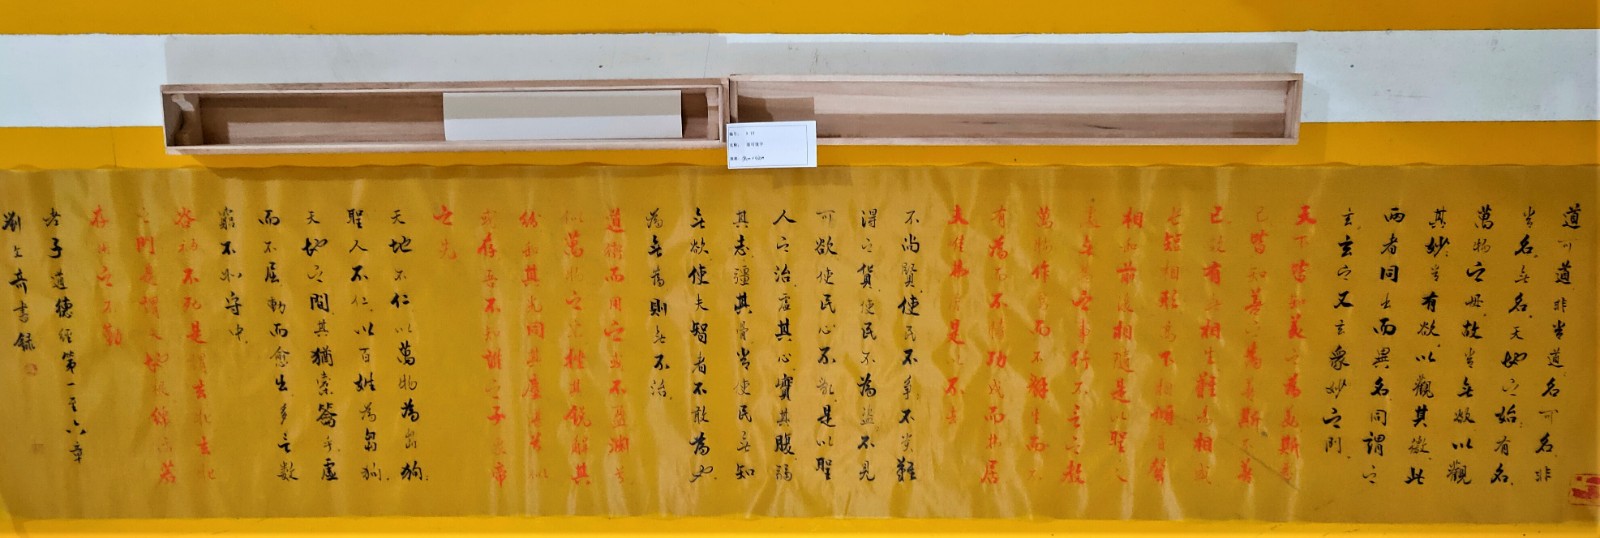 道可道非常道名可名非
常名無名天地之始有名
萬物之母故常無欲以觀
其妙常有欲以觀其徼此
兩者同出而異名同謂之
玄玄之又玄衆妙之門
天下皆知美之為美斯惡
已皆知善之為善斯不善
已故有無相生難易相成
長短相形高下相傾音聲
相和前後相隨是以聖人
處無為之事行不言之教
萬物作焉而不辭生而不
有為而不恃功成而弗居
夫唯弗居是以不去
不尚賢使民不爭不貴難
得之貨使民不為盜不見
可欲使民心不亂是以聖
人之治虛其心實其腹弱
其志彊其骨常使民無知
無欲使夫智者不敢為也
為無為則無不治
道沖而用之或不盈淵兮
似萬物之宗挫其銳解其
紛和其光同其塵湛兮似
或存吾不知誰之子象帝
之先
天地不仁以萬物為芻狗
聖人不仁以百姓為芻狗
天地之間其猶橐籥乎虛
而不屈動而愈出多言數
窮不如守中
谷神不死是謂玄牝玄牝
之門是謂天地根綿綿若
存用之不勤
老子道德經第一至六章
劉文奇書錄